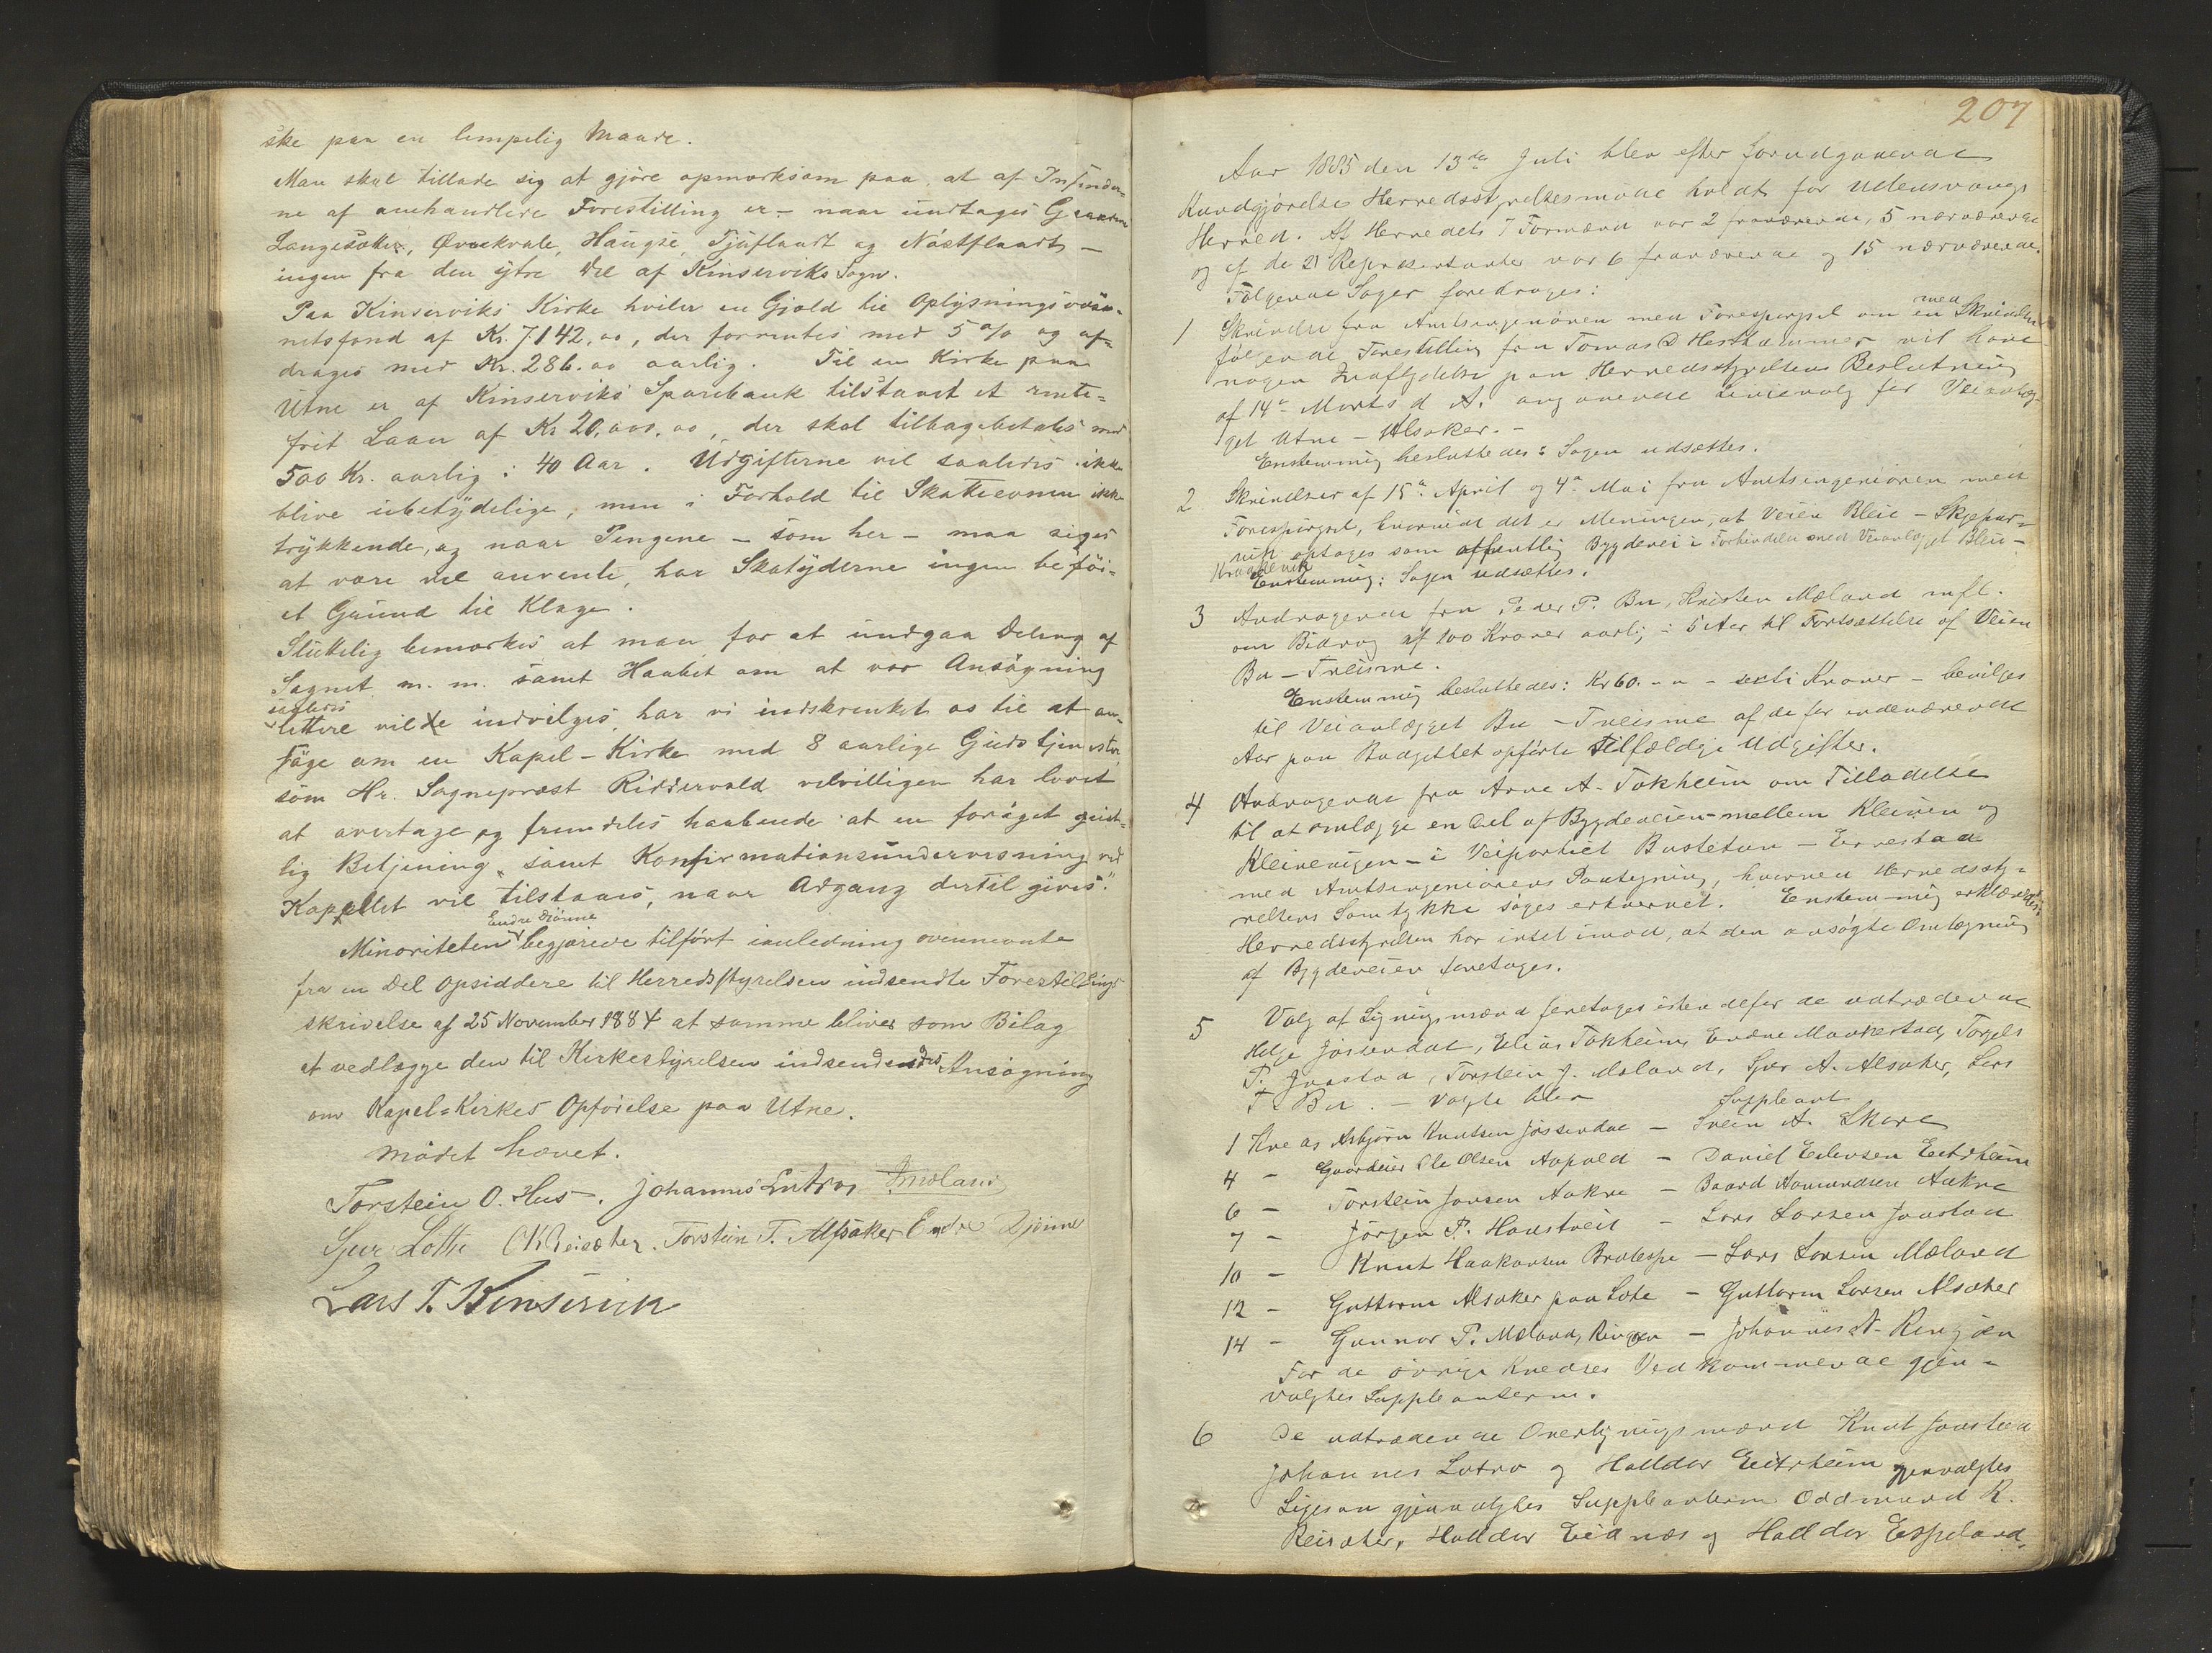 ske paa en lempelig Maade.
Man skal tillade sig at gjöre opmærksom paa, at af Insenderne
ne af omhandlede Forestilling er – naar undtages Graakvam
Langesæter, Øvrekvale, Haugse, Tjuflaadt og Nästflaadt –
ingen fra den ÿtre Del af Kinserviks Sogn.
Paa Kinserviks Kirke hviler en Gjæld til Oplÿsningsvæse-
netsfond af Kr. 7142,00, der forrentes med 5 % og af-
drages med Kr. 286.00 aarlig. Til en Kirke paa
Utne er af Kinserviks Sparebank tilstaaet et rente-
frit Laan af Kr 20,000,00, der skal tilbagebetales med
500 Kr. aarlig i 40 Aar. Udgifterne vil saaledes ikke
blive ubetÿdelige, men i Forhold til Skatteevnen ikke
trÿkkende, og naar Pengene – som her – maa siges
at være vel anvendte, har Skatÿderne ingen beföi-
et Grund til Klage.
Sluttelig bemærkes at man for at undgaa Deling af
Sognet m. m. samt Haabet om at vor Ansögning
saaledes
lettere vilde indvilges, har vi indskrænket os til at an-
söge om en Kapel-Kirke med 8 aarlige Gudstjenester
som Hr. Sognepræst Riddervold velvilligen har lovet
at overtage, og fremdeles haabende at en foröget geist-
lig Betjening, samt Konfirmationsundervisning ved
Kapellet vil tilstaaes, naar Adgang dertil gives."
Endre Djönne
Minoriteten begjærede tilfört i anledning ovennævnte
fra en Del Opsiddere til Herredsstyrelsen indsendte Forestillings
skrivelse af 25 November 1884 at samme bliver som Bilag
at vedlægge den til Kirkestyrelsen indsendendes Ansögning
om Kapel-Kirkes Opförelse paa Utne.
mödet hævet.
Torstein O. Hus. Johannes Lutro
Sjur Lothe O K Reisæter. Torstein T. Alsaker Endre Djönne
Lars T. Kinservik
207
Aar 1885 den 13de Juli blev efter forudgaaende
Kundgjörelse Herredsstyrelsesmöde holdt for Ullensvangs
Herred. Af Herredets 7 Formænd var 2 fraværende, 5 nærværende
og af de 21 Repræsentanter var 6 fraværende og 15 nærværende.
Fölgende Sager foredroges:
1 Skrivelse fra Amtsingeniören med Forespörgsel om en med Skrivelsen
fölgende Forestilling fra Tomas D Hesthammer vil have
nogen Indflydelse paa Herredsstyrelsens Beslutning
af 14de Marts d. A. angaaende Linievalg for Veianlæg-
get Utne – Alsaker. –
Enstemmig besluttedes: Sagen udsættes.
2 Skrivelser af 15de April og 4de Mai fra Amtsingeniören med
Forespörgsel, hvorvidt det er Meningen, at Veien Bleie – Skjepar-
vik optages som offentlig Bygdevei i Forbindelse med Veianlægget Bleie –
Kraakevik
Enstemmig: Sagen udsættes.
3 Andragende fra Peder P. Bu, Kristen Mæland mfl.
om Bidrag af 100 Kroner aarlig i 5 Aar til Fortsættelse af Veien
Bu – Treisme.
Enstemmig besluttedes: Kr 60. – sexti Kroner – bevilges
til Veianlægget Bu – Treisme af de for indeværende
Aar paa Budgettet opförte tilfældige Udgifter.
4 Andragende fra Arne A. Tokheim om Tilladelse
til at omlægge en Del af Bygdeveien mellem Kleiven og
Kleivevigen – i Veipartiet Bustetun – Ernestad
med Amtsingeniörens Paategning, hvorved Herredssty-
relsens Samtykke söges erhvervet. Enstemmig erklæredes:
Herredsstyrelsen har intet imod, at den ansögte Omlægning
af Bygdeveien foretages.
5 Valg af Ligningsmænd foretoges istedetfor de udtrædende
Helge Jösendal, Elias Tokheim, Endre Maakestad, Torgels
P. Jaastad, Torstein J. Mæland, Sjur A. Alsaker, Lars
T. Bu. – Valgte blev Suppleant
1 Kreds Asbjörn Knutsen Jössendal – Svein A. Skare
4 – Gaardeier Ole Olsen Aapald – Daniel Edensen Eitrheim
6 – Torstein Jonsen Aakre – Baard Aamundsen Aakre
7 – Jörgen P. Haustveit – Lars Larsen Jaastad
10 – Knut Haakonsen Bratespe – Lars Larsen Mæland
12 – Guttorm Alsaker paa Lote – Guttorm Larsen Alsaker
14 – Gunnar P. Mæland, Ringöen – Johannes N. Ringöen
For de övrige Kredses Vedkommende gjen-
valgtes Suppleanterne.
6 De udtrædende Overligningsmænd Knut Jaastad
Johannes Lutro og Halldor Eitrheim gjenvalgtes
Ligesaa gjenvalgtes Suppleanterne Oddmund K.
Reisæter, Halldor Eidnæs og Halldor Espeland.